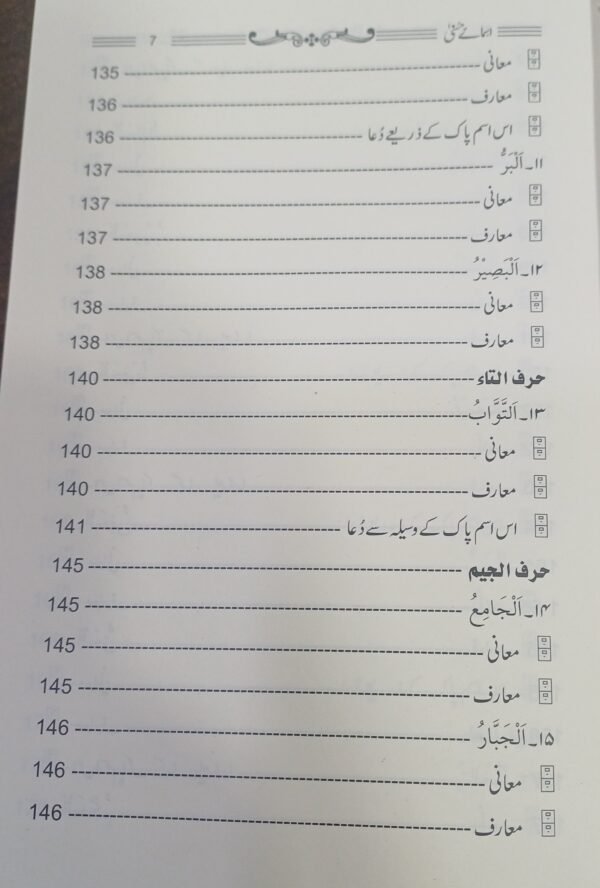 اسمائے حسنیٰ 7
معانی ---------- 135
معارف ---------- 136
اس اسم پاک کے ذریعے دُعا ---------- 136
۱۱۔ اَلْبَرُّ ---------- 137
معانی ---------- 137
معارف ---------- 137
۱۲۔ اَلْبَصِیْرُ ---------- 138
معانی ---------- 138
معارف ---------- 138
حرف التاء ---------- 140
۱۳۔ اَلتَّوَّابُ ---------- 140
معانی ---------- 140
معارف ---------- 140
اس اسم پاک کے وسیلہ سے دُعا ---------- 141
حرف الجیم ---------- 145
۱۴۔ اَلْجَامِعُ ---------- 145
معانی ---------- 145
معارف ---------- 145
۱۵۔ اَلْجَبَّارُ ---------- 146
معانی ---------- 146
معارف ---------- 146